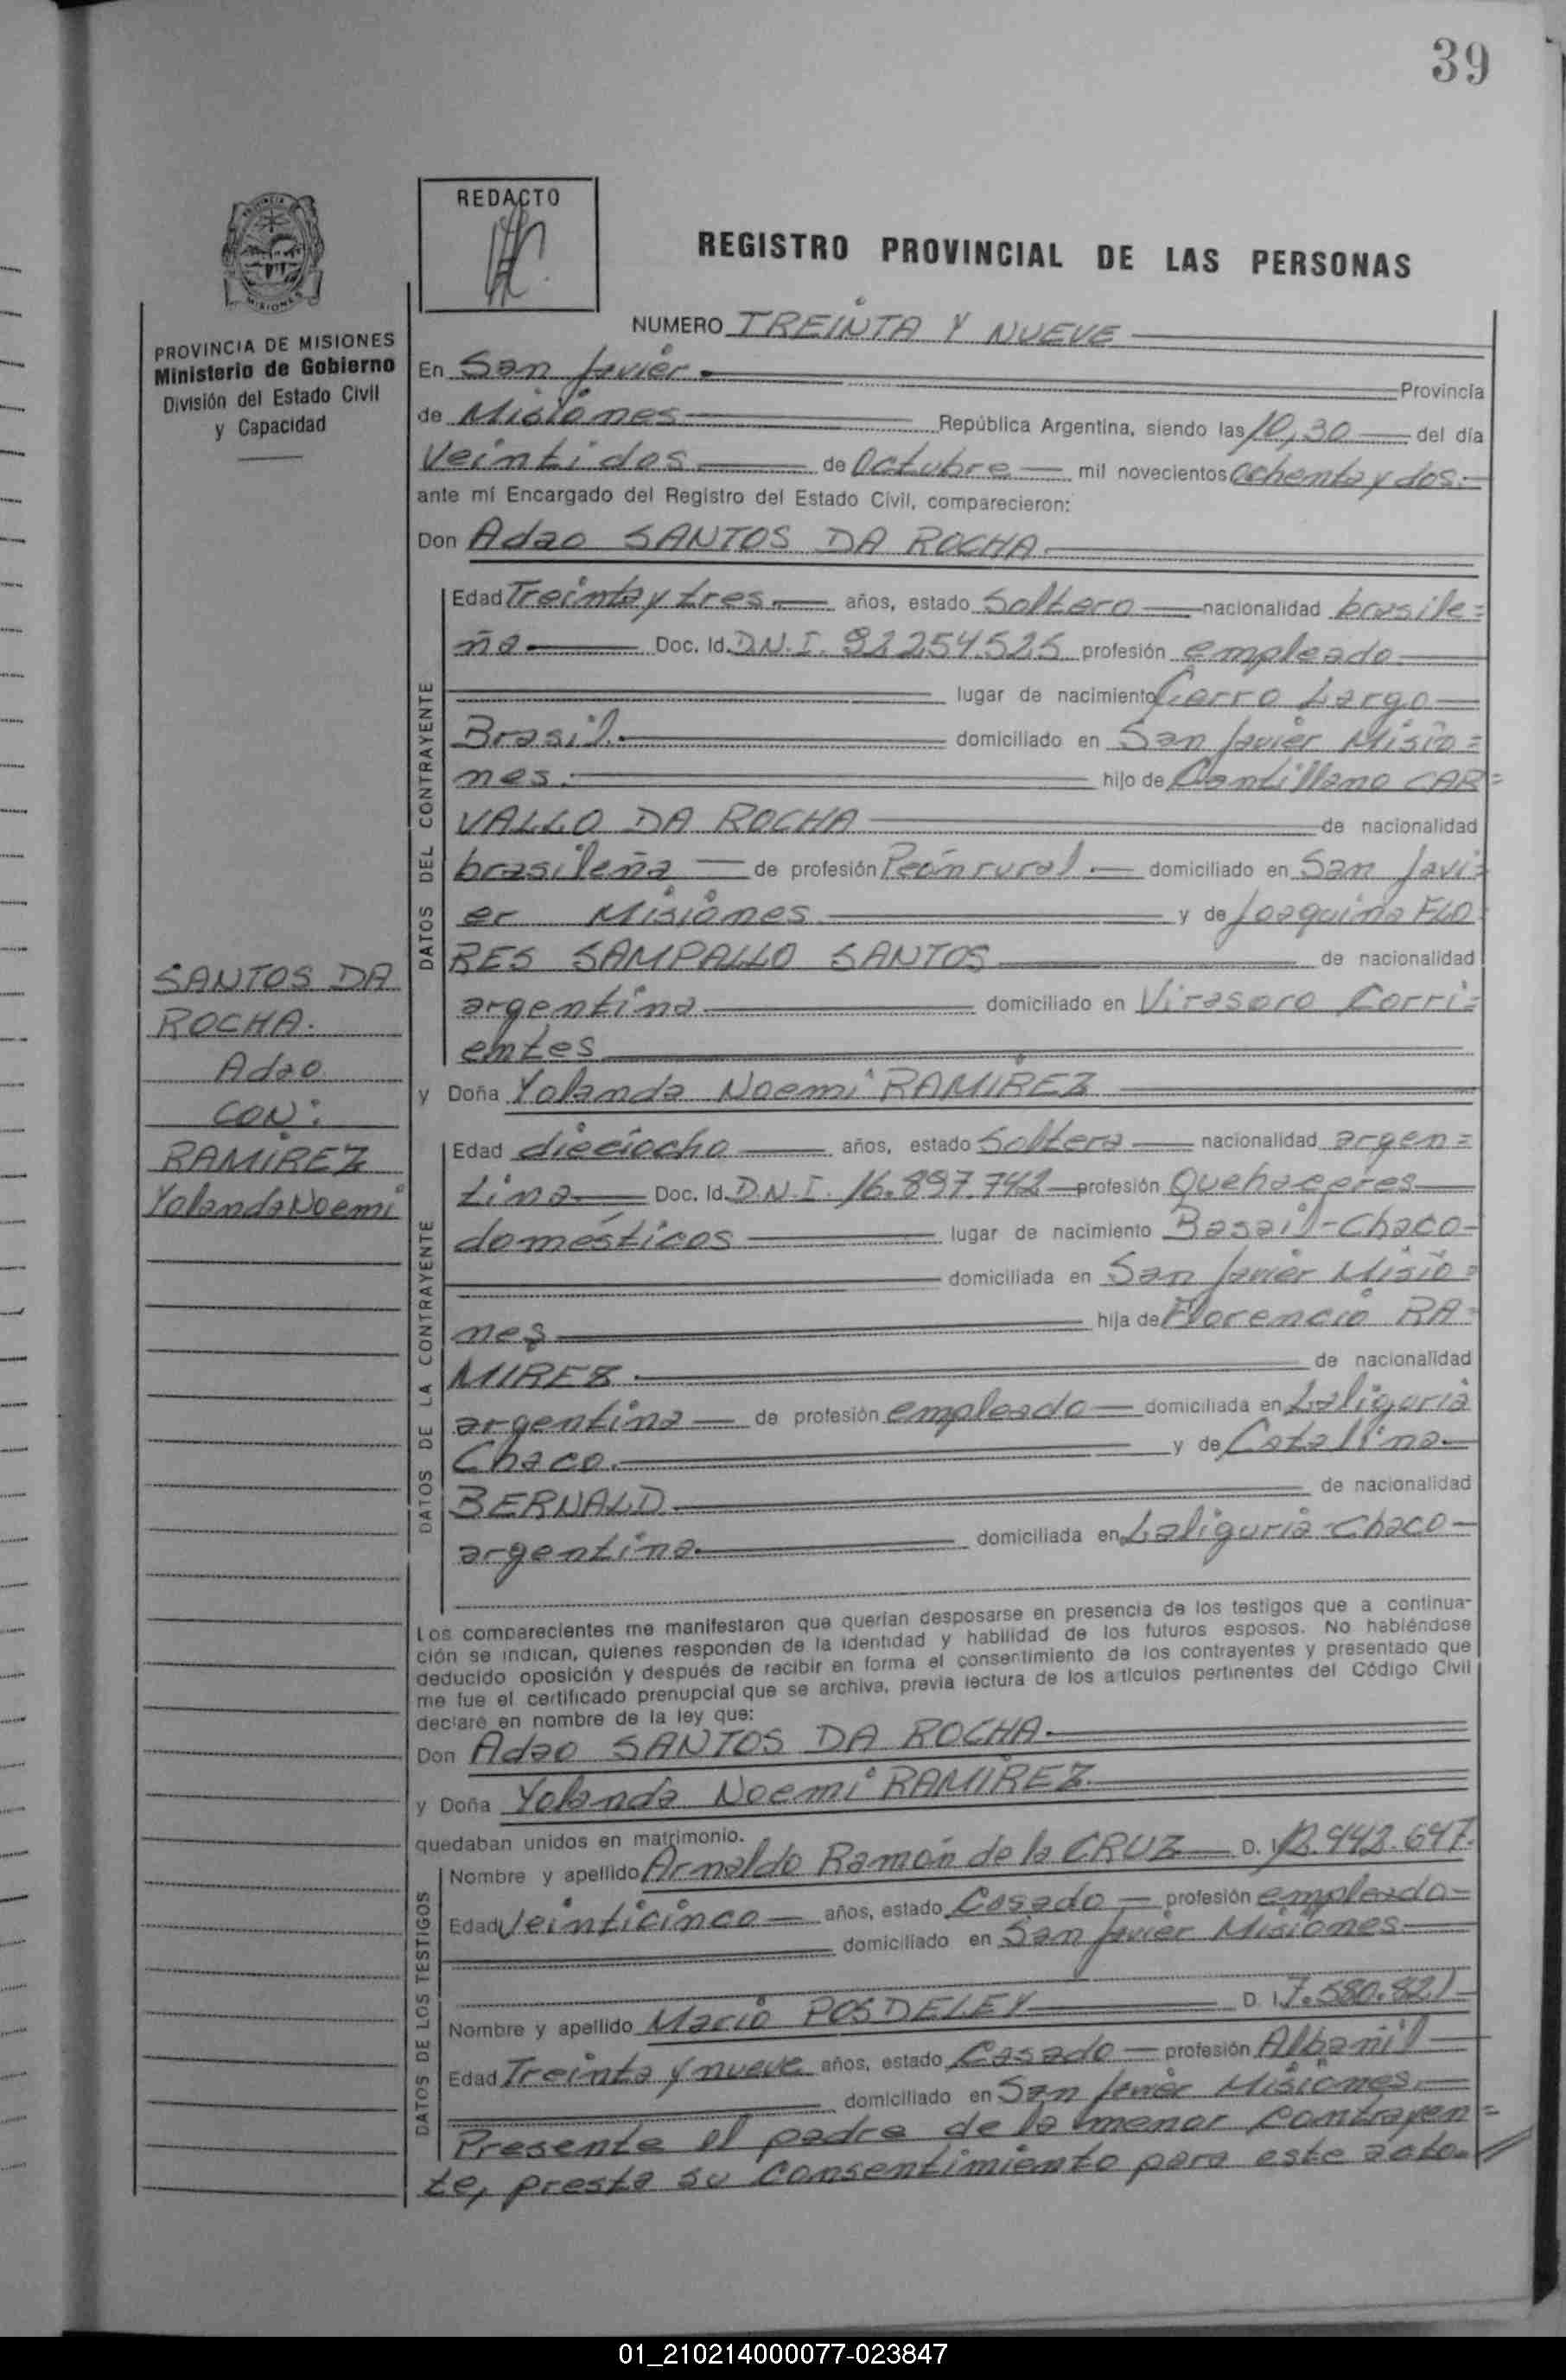 39
REDACTO
REGISTRO PROVINCIAL DE LAS PERSONAS
MISIONES
PROVINCIA DE MISIONES
Ministerio de Gobierno
División del Estado Civil
y Capacidad
NUMERO TREINTA Y NUEVE
En San Javier. Provincia
de Misiones República Argentina, siendo las 10,30 del día
Veintidos de Octubre mil novecientos ochenta y dos.
ante mí Encargado del Registro del Estado Civil, comparecieron:
Don Adao SANTOS DA ROCHA
DATOS DEL CONTRAYENTE
Edad Treinta y tres años, estado Soltero nacionalidad brasile=
ña Doc. Id. D.N.I. 92254.525 profesión empleado
lugar de nacimiento Cerro Largo
Brasil. domiciliado en San Javier Misio=
nes. hijo de Cantillano CAR=
VALLO DA ROCHA de nacionalidad
brasileña de profesión Peón rural. domiciliado en San Javi=
er Misiones y de Joaquina FLO
RES SAMPALLO SANTOS de nacionalidad
argentina domiciliado en Virasoro Corri=
entes
SANTOS DA
ROCHA.
Adao
CON:
RAMIREZ
Yolanda Noemi
y Doña Yolanda Noemi RAMIREZ
DATOS DE LA CONTRAYENTE
Edad dieciocho años, estado Soltera nacionalidad argen=
tina Doc. Id. D.N.I. 16.897.742 profesión Quehaceres
domésticos lugar de nacimiento Basail-Chaco-
domiciliada en San Javier Misio=
nes hija de Florencio RA=
MIREZ. de nacionalidad
argentina de profesión empleado domiciliada en Laliguria
Chaco. y de Catalina
BERNALD de nacionalidad
argentina domiciliada en Laliguria Chaco
Los comparecientes me manifestaron que querían desposarse en presencia de los testigos que a continua-
ción se indican, quienes responden de la identidad y habilidad de los futuros esposos. No habiéndose
deducido oposición y después de recibir en forma el consentimiento de los contrayentes y presentado que
me fue el certificado prenupcial que se archiva, previa lectura de los artículos pertinentes del Código Civil
declaré en nombre de la ley que:
Don Adao SANTOS DA ROCHA
y Doña Yolanda Noemi RAMIREZ
quedaban unidos en matrimonio.
DATOS DE LOS TESTIGOS
Nombre y apellido Arnaldo Ramón de la CRUZ D. I. 12.442.647.
Edad Veinticinco años, estado Casado profesión empleado
domiciliado en San Javier Misiones
Nombre y apellido Mario POSDELEY D. I. 7.580.821
Edad Treinta y nueve años, estado Casado profesión Albañil
domiciliado en San Javier Misiones.
Presente el padre de la menor contrayen=
te, presta su consentimiento para este acto.
01_210214000077-023847